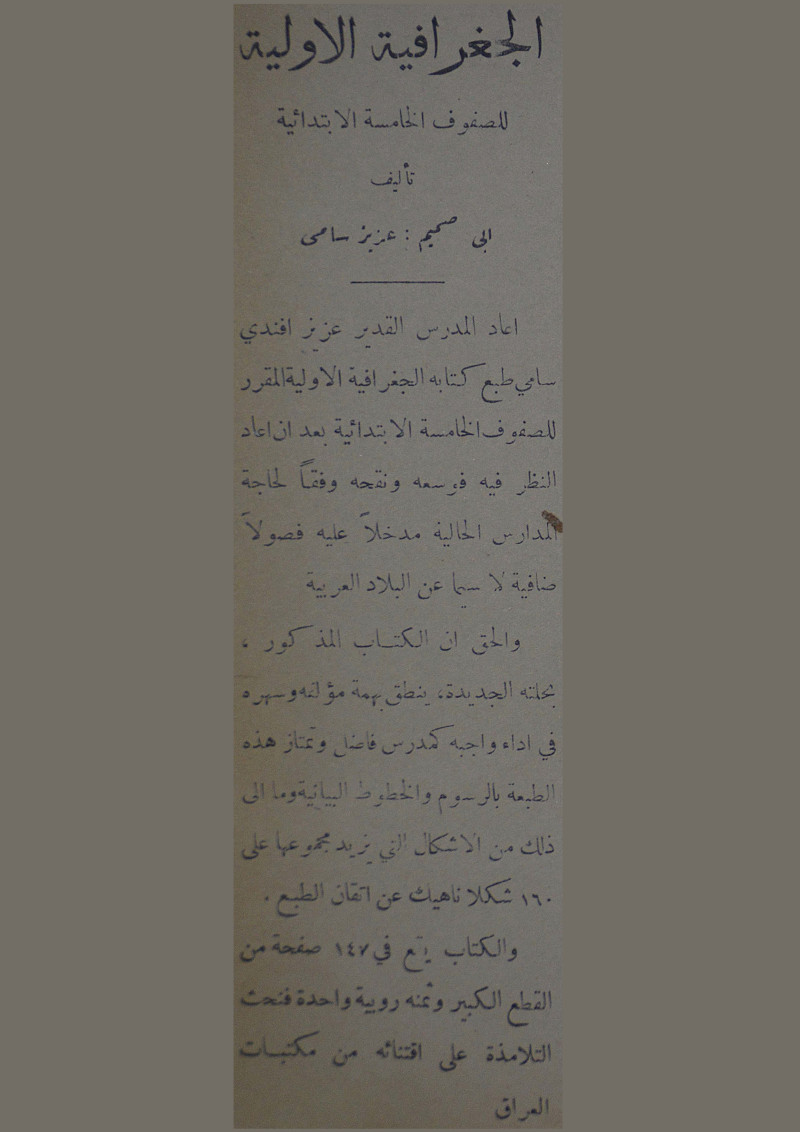 الجغرافية الاولية
للصفوف الخامسة الابتدائية
تأليف
ابي صميم : عزيز سامي
اعاد المدرس القدير عزيز افندي
سامي طبع كتابه الجغرافية الاولية المقرر
للصفوف الخامسة الابتدائية بعد ان اعاد
النظر فيه فوسعه ونقحه وفقاً لحاجة
المدارس الحالية مدخلاً عليه فصولاً
ضافية لا سيما عن البلاد العربية
والحق ان الكتاب المذكور ،
بحلته الجديدة، ينطق بهمة مؤلفه وسهره
في اداء واجبه كمدرس فاضل وتمتاز هذه
الطبعة بالرسوم والخطوط البيانية وما الى
ذلك من الاشكال التي يزيد مجموعها على
١٦٠ شكلا ناهيك عن اتقان الطبع .
والكتاب يقع في ١٤٧ صفحة من
القطع الكبير وثمنه روبية واحدة فنحث
التلامذة على اقتنائه من مكتبات
العراق